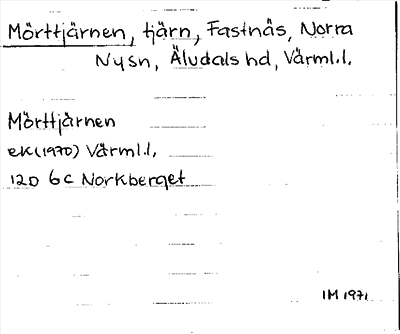 Mörttjärnen, tjärn, Fastnäs, Norra
Ny sn, Äludals hd, Värml.l.
Mörttjärnen
ek (1970) Värml.l.
12D 6c Norkberget
IM 1971